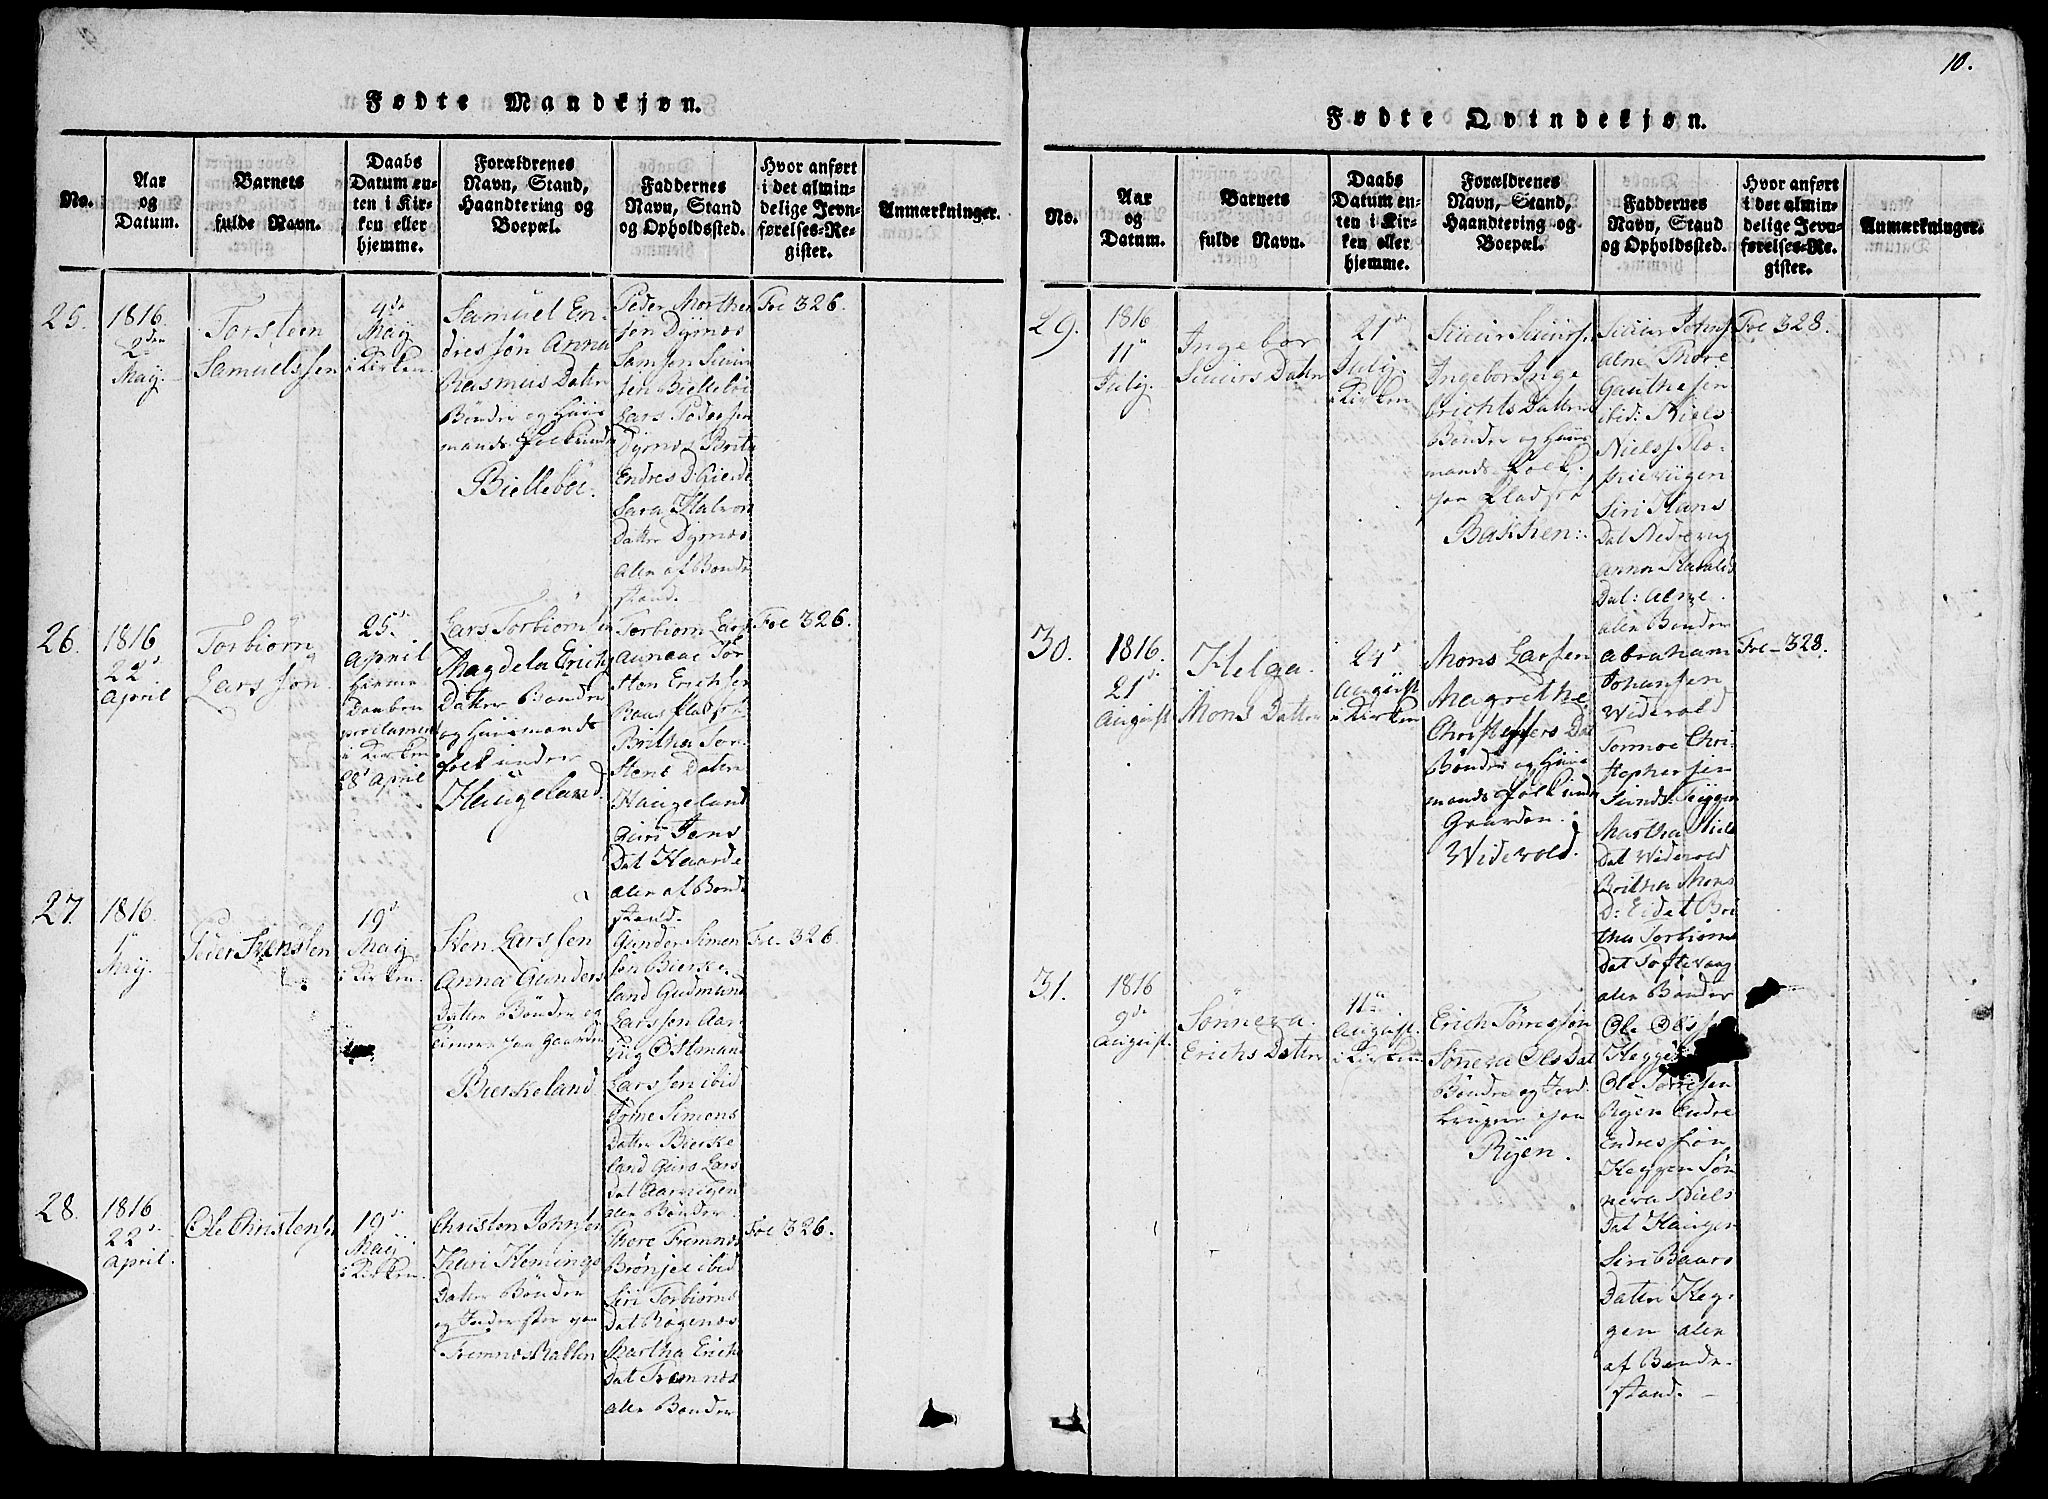 10.
Fødte Mandkjøn.
No.
Aar
og
Datum.
Barnets
fulde Navn.
Daabs
Datum en-
ten i Kir-
ken eller
hjemme.
Forældrenes
Navn, Stand,
Haandtering og
Boepæl.
Faddernes
Navn, Stand
og Opholdssted.
Hvor anført
i det almin-
delige Jevn-
førelses-Re-
gister.
Anmærkninger.
25.
1816.
2den
Maij.
Torsteen
Samuelssen
9de
Maij
i Kirken.
Samuel En-
dressøn Anna
Rasmus Datter
Bønder og Huus
mands folk under
Biellebøe.
Peder Morthen
sen Dyrnæs
Lars Pedersen
Dyrnæs Berta
Endres D:
Sara Halvor
Datter Dyrnæs
alle af Bonde
stand.
Foe 326.
26.
1816.
22d
April
Torbiørn
Larssøn.
25d
April
Hiemme
Daaben
i Kirken
28d April
Lars Torbiørnsen
Magdela Erichs
Datter Bønder
og Huusmands
folk under
Haugeland.
Torbiørn Lars
Aunaae Tor
sten Erichsen
Britha Tor-
stens Daten
Haugeland
Guri Jens
Dat Haarde
alle af Bonde
stand.
Foe 326.
27.
1816.
Maij.
Peder Svensen
19d
Maij
i Kirken.
Sven Larssen
Anna Gunders
Datter Bønder og
Bierkeland.
Gunder Simon
søn Bierke-
land Gudmund
Larssen Aar-
vig Østmand
Larssen ibid
Tørne Simons
Datter Bierke
land Guro Lars
Dat Aarvigen
alle Bønder.
Foe 326.
28.
1816
22d
April.
Ole Christens.
19d
Maij
i Kirken.
Christen Johnsen
Kari Flemings
Datter Bønder
og Inderster paa
Fremnes Katten
Thore Fremnæs
Brønjel ibid
Siri Torbiørns
Dat Bøgenæs
Martha Erichs
Dat Fremnæs
alle Bønder
Foe 326.
Fødte Qvindekjøn.
No.
Aar
og
Datum.
Barnets
fulde Navn.
Daabs
Datum en-
ten i Kir-
ken eller
hjemme.
Forældrenes
Navn, Stand,
Haandtering og
Boepæl.
Faddernes
Navn, Stand
og Opholdssted.
Hvor anført
i det almin-
delige Jevn-
førelses-Re-
gister.
Anmærkninger.
29.
1816
11te
Julij.
Ingebor
Siuurs Datter
21d
Julij.
i Kirken
Siuur Siuurss.
Ingebor Inge
brichts Datter
Bønder og Huus
mands Folk.
paa Pladsen
Bakken:
Siuur Johns
Alne Thore
Gauthesen
ibid: Niels
Niels Sto-
Siri Hans
Dat Nedrevig
Anna Haralds
Dat: Alne.
alle Bønder
Foe 328.
30.
1816.
21d
August.
Helga.
Mons Datter
24d
August
i Kirken
Mons Larsen
Magrethe
Christophers Dat
Bønder og Huus
mands folk under
Gaarden
Widevold.
Abraham
Johansen
Widevold
Tormoe Chri-
stophersen
Martha Niels
Dat Widevold
Britha Mons
D: Eidet Bri
tha Torbiørns
Dat Toftevaag
alle Bønder
Foe 328.
31.
1816
9de
August.
Sønneva.
Erichs Datter
11te
August.
i Kirken
Erich Tørresøn
Sønneva Ols Dat
Bønder og Jord-
brugere paa
Rÿen.
Ole Olss
Heggen
Ole Tørresen
Rÿen Endre
Endressøn
Heggen Søn
neva Niels
Dat Haugen
Siri Baars
Daten Heg-
gen alle
af Bonde
stand.